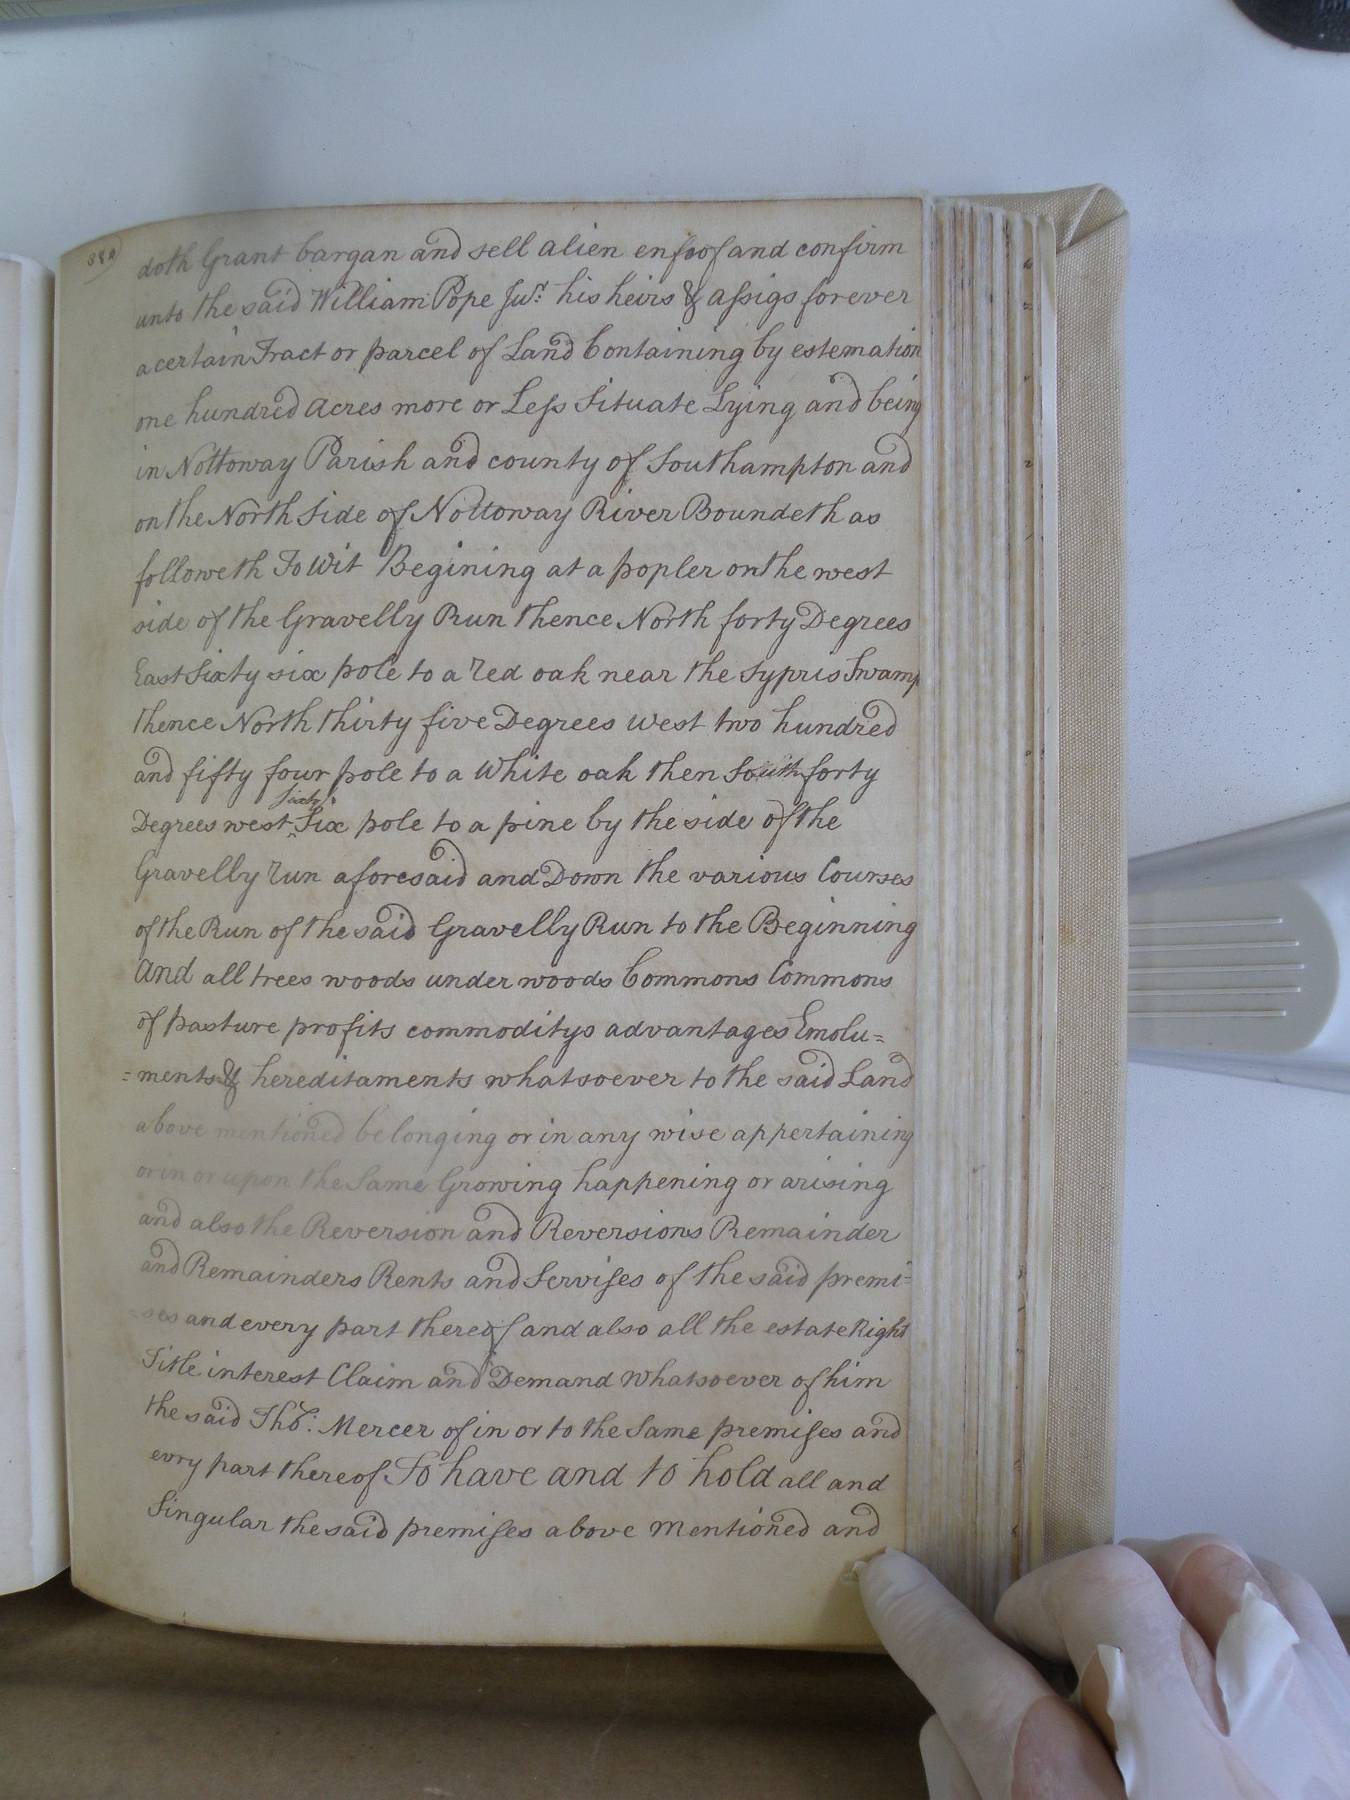 doth Grant bargan and sell alien enfoof and confirm
unto the said William Pope Junr. his heirs & assigs forever
a certain Tract or parcel of Land Containing by estemation
one hundred Acres more or Less Situate Lying and being
in Nottoway Parish and county of Southampton and
on the North Side of Nottoway River Boundeth as
followeth To Wit Begining at a popler on the west
side of the Gravelly Run thence North forty Degrees
East Sixty six pole to a red oak near the Sypris Swamp
thence North thirty five Degrees west two hundred
and fifty four pole to a White oak then South forty
sixty
Degrees west ^ Six pole to a pine by the side of the
Gravelly run aforesaid and Down the various Courses
of the Run of the said Gravelly Run to the Beginning
And all trees woods under woods Commons Commons
of pasture profits commoditys advantages Emolu=
=ments & hereditaments whatsoever to the said Land
above mentioned belonging or in any wise appertaining
or in or upon the Same Growing happening or arising
and also the Reversion and Reversions Remainder
and Remainders Rents and Servises of the said premi=
=ses and every part thereof and also all the estate Right
Title interest Claim and Demand Whatsoever of him
the said Thos: Mercer of in or to the Same premises and
evry part thereof To have and to hold all and
Singular the said premises above mentioned and